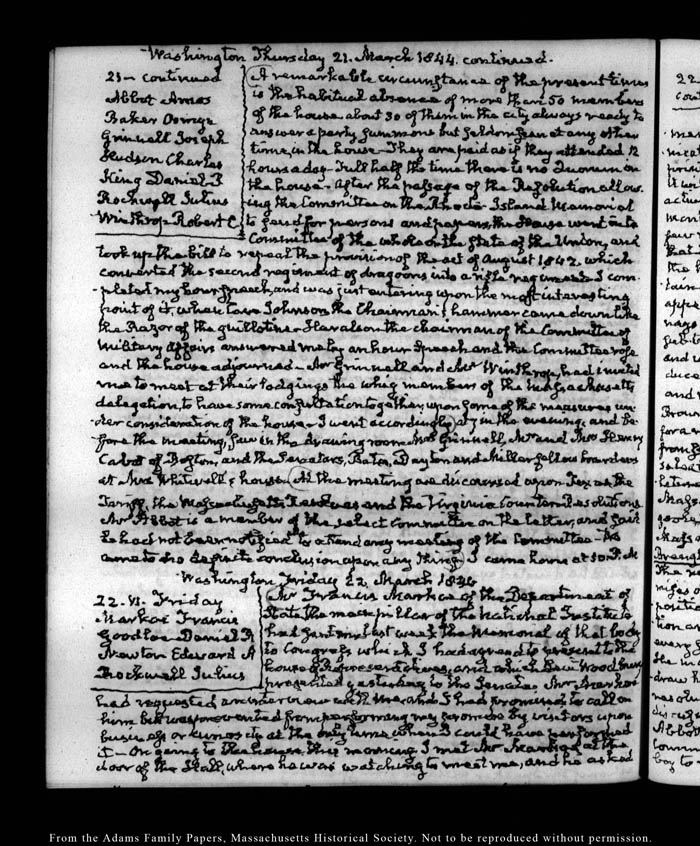 Washington Thursday 21. March 1844. continued.
21 - continued
Abbot Amos
Baker Osmyn
Grinnell Joseph
Hudson Charles
King Daniel P.
Rockwell Julius
Winthrop Robert C.
A remarkable circumstance of the present times
is the habitual absence of more than 50 members
of the house about 30 of them in the city always ready to
answer a party summons but seldom seen at any other
time, in the house - They are paid as if they attended 12
hours a day - Full half the time there is no Quorum in
the house - After the passage of the Resolution allow-
ing the Committee on the Rhode-Island Memorial
to send for persons and papers, the House went into
Committee of the whole on the State of the Union, and
took up the bill to repeal the provision of the act of August 1842, which
converted the second regiment of dragoons into a rifle regiment I com-
pleted my hour speech, and was just entering upon the most interesting
point of it, when Cave Johnson the Chairman's hammer came down like
the Razor of the guillotine - Haralson the chairman of the Committee of
Military Affairs answered me by an hour speech and the Committee rose
and the house adjourned - Mr Grinnell and Mr Winthrop, had invited
me to meet at their lodgings the whig members of the Massachusetts
delegation, to have some consultation together, upon some of the measures un-
der consideration of the house - I went accordingly at 7 in the evening, and be-
fore the meeting, saw in the drawing room Mrs Grinnell, Mr and Mrs Henry
Cabot of Boston, and the Senators, Bates, Dayton and Miller fellow boarders
at Mrs Whitwell's house. At the meeting we discoursed upon Texas the
Tariff, the Massachusetts Resolves and the Virginia Counter Resolutions
Mr Abbot is a member of the select Committee on the latter, and said
he had not been notified to attend any meeting of the Committee - We
came to no definite conclusion upon any thing. I came home at 10 P. M
Washington Friday 22. March 1844
22. VI. Friday
Markoe Francis
Goodloe Daniel R
Newton Edward A
Rockwell Julius
Mr Francis Markoe of the Department of
State the main pillar of the National Institute
had sent me last week the Memorial of that body
to Congress which I had agreed to present to the
house of Representatives, and which Levi Woodbury
presented yesterday to the Senate. Mr Markoe
had requested an interview with me and I had promised to call on
him but was prevented from performing my promise by visitors upon
business or curiosity at the only time when I could have performed
it - On going to the house this morning I met Mr Markoe at the
door of the Hall, where he was watching to meet me, and he asked
22
From the Adams Family Papers, Massachusetts Historical Society. Not to be reproduced without permission.